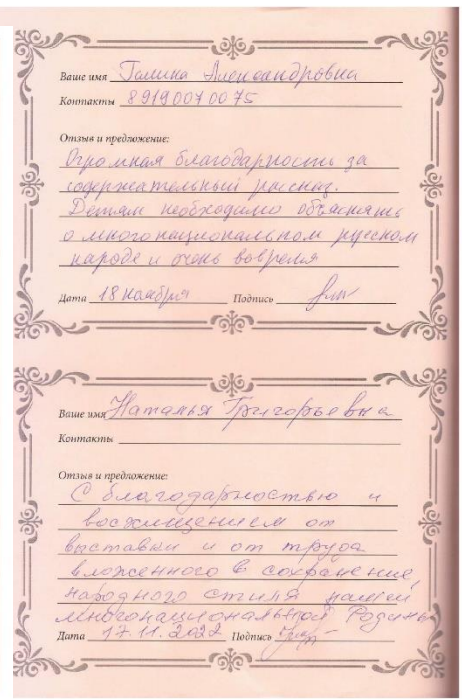 Ваше имя Галина Александровна
Контакты 89190070075
Отзыв и предложение:
Огромная благодарность за
содержательный рассказ.
Детям необходимо объяснять
о многонациональном русском
народе и очень вовремя
Дата 18 ноября Подпись
Ваше имя Наталья Григорьевна
Контакты
Отзыв и предложение:
С благодарностью и
восхищением от
выставки и от труда
вложенного в сохранение
народного стиля нашей
многонациональной Родины
Дата 17.11.2022 Подпись